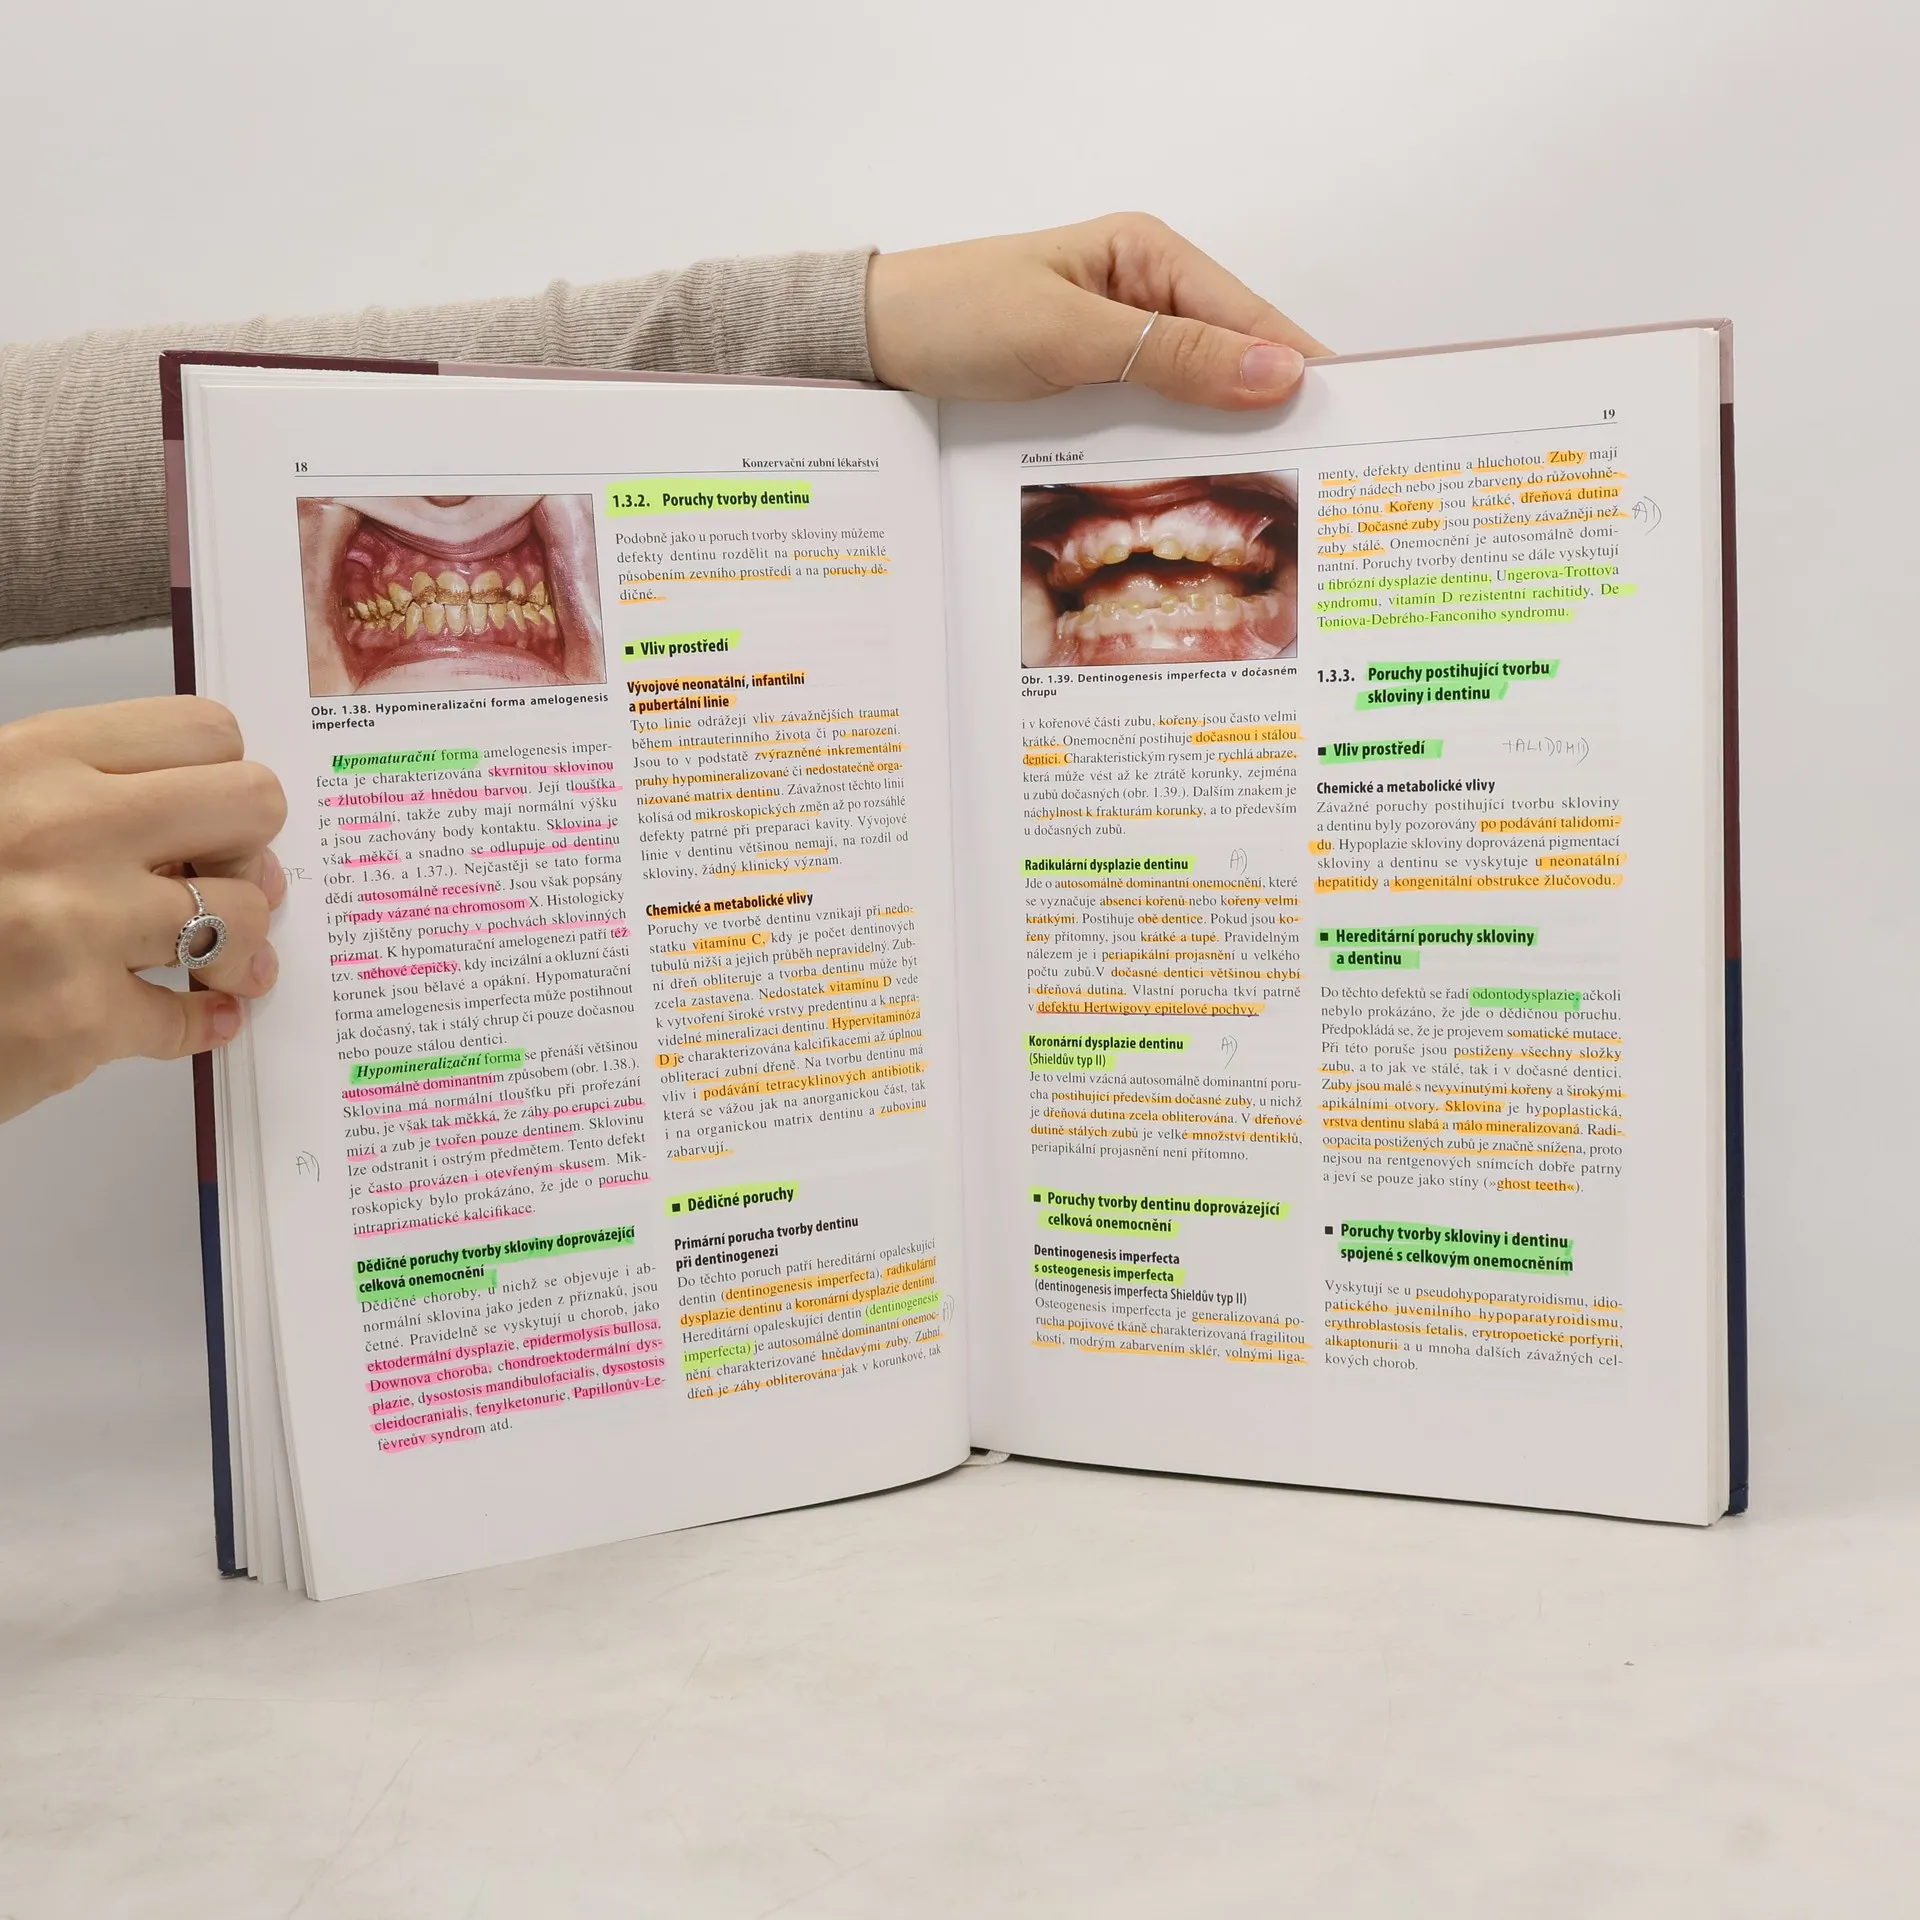 18
Konzervační zubní lékařství
Obr. 1.38. Hypomineralizační forma amelogenesis
imperfecta
Hypomaturační forma amelogenesis imper-
fecta je charakterizována skvrnitou sklovinou
se žlutobílou až hnědou barvou. Její tloušťka
je normální, takže zuby mají normální výšku
a jsou zachovány body kontaktu. Sklovina je
však měkčí a snadno se odlupuje od dentinu
(obr. 1.36. a 1.37.). Nejčastěji se tato forma
AR
dědí autosomálně recesivně. Jsou však popsány
i případy vázané na chromosom X. Histologicky
byly zjištěny poruchy v pochvách sklovinných
prizmat. K hypomaturační amelogenezi patří též
tzv. sněhové čepičky, kdy incizální a okluzní části
korunek jsou bělavé a opákní. Hypomaturační
forma amelogenesis imperfecta může postihnout
jak dočasný, tak i stálý chrup či pouze dočasnou
nebo pouze stálou dentici.
Hypomineralizační forma se přenáší většinou
autosomálně dominantním způsobem (obr. 1.38.).
Sklovina má normální tloušťku při prořezání
zubu, je však tak měkká, že záhy po erupci zubu
mizí a zub je tvořen pouze dentinem. Sklovinu
lze odstranit i ostrým předmětem. Tento defekt
AD
je často provázen i otevřeným skusem. Mik-
roskopicky bylo prokázáno, že jde o poruchu
intraprizmatické kalcifikace.
Dědičné poruchy tvorby skloviny doprovázející
celková onemocnění
Dědičné choroby, u nichž se objevuje i ab-
normální sklovina jako jeden z příznaků, jsou
četné. Pravidelně se vyskytují u chorob, jako
ektodermální dysplazie, epidermolysis bullosa,
Downova choroba, chondroektodermální dys-
plazie, dysostosis mandibulofacialis, dysostosis
cleidocranialis, fenylketonurie, Papillonův-Le-
fèvreův syndrom atd.
1.3.2. Poruchy tvorby dentinu
Podobně jako u poruch tvorby skloviny můžeme
defekty dentinu rozdělit na poruchy vzniklé
působením zevního prostředí a na poruchy dě-
dičné.
■ Vliv prostředí
Vývojové neonatální, infantilní
a pubertální linie
Tyto linie odrážejí vliv závažnějších traumat
během intrauterinního života či po narození.
Jsou to v podstatě zvýrazněné inkrementální
pruhy hypomineralizované či nedostatečně orga-
nizované matrix dentinu. Závažnost těchto linií
kolísá od mikroskopických změn až po rozsáhlé
defekty patrné při preparaci kavity. Vývojové
linie v dentinu většinou nemají, na rozdíl od
skloviny, žádný klinický význam.
Chemické a metabolické vlivy
Poruchy ve tvorbě dentinu vznikají při nedo-
statku vitaminu C, kdy je počet dentinových
tubulů nižší a jejich průběh nepravidelný. Zub-
ní dřeň obliteruje a tvorba dentinu může být
zcela zastavena. Nedostatek vitaminu D vede
k vytvoření široké vrstvy predentinu a k nepra-
videlné mineralizaci dentinu. Hypervitaminóza
D je charakterizována kalcifikacemi až úplnou
obliterací zubní dřeně. Na tvorbu dentinu má
vliv i podávání tetracyklinových antibiotik,
která se vážou jak na anorganickou část, tak
i na organickou matrix dentinu a zubovinu
zabarvují.
■ Dědičné poruchy
Primární porucha tvorby dentinu
při dentinogenezi
Do těchto poruch patří hereditární opaleskující
dentin (dentinogenesis imperfecta), radikulární
dysplazie dentinu a koronární dysplazie dentinu.
Hereditární opaleskující dentin (dentinogenesis
AD
imperfecta) je autosomálně dominantní onemoc-
nění charakterizované hnědavými zuby. Zubní
dřeň je záhy obliterována jak v korunkové, tak
Zubní tkáně
19
Obr. 1.39. Dentinogenesis imperfecta v dočasném
chrupu
i v kořenové části zubu, kořeny jsou často velmi
krátké. Onemocnění postihuje dočasnou i stálou
dentici. Charakteristickým rysem je rychlá abraze,
která může vést až ke ztrátě korunky, zejména
u zubů dočasných (obr. 1.39.). Dalším znakem je
náchylnost k frakturám korunky, a to především
u dočasných zubů.
Radikulární dysplazie dentinu
AD
Jde o autosomálně dominantní onemocnění, které
se vyznačuje absencí kořenů nebo kořeny velmi
krátkými. Postihuje obě dentice. Pokud jsou ko-
řeny přítomny, jsou krátké a tupé. Pravidelným
nálezem je i periapikální projasnění u velkého
počtu zubů.V dočasné dentici většinou chybí
i dřeňová dutina. Vlastní porucha tkví patrně
v defektu Hertwigovy epitelové pochvy.
Koronární dysplazie dentinu
AD
(Shieldův typ II)
Je to velmi vzácná autosomálně dominantní poru-
cha postihující především dočasné zuby, u nichž
je dřeňová dutina zcela obliterována. V dřeňové
dutině stálých zubů je velké množství dentiklů,
periapikální projasnění není přítomno.
■ Poruchy tvorby dentinu doprovázející
celková onemocnění
Dentinogenesis imperfecta
s osteogenesis imperfecta
(dentinogenesis imperfecta Shieldův typ II)
Osteogenesis imperfecta je generalizovaná po-
rucha pojivové tkáně charakterizovaná fragilitou
kostí, modrým zabarvením sklér, volnými liga-
menty, defekty dentinu a hluchotou. Zuby mají
modrý nádech nebo jsou zbarveny do růžovohně-
dého tónu. Kořeny jsou krátké, dřeňová dutina
chybí. Dočasné zuby jsou postiženy závažněji než
AD
zuby stálé. Onemocnění je autosomálně domi-
nantní. Poruchy tvorby dentinu se dále vyskytují
u fibrózní dysplazie dentinu, Ungerova-Trottova
syndromu, vitamín D rezistentní rachitidy, De
Toniova-Debrého-Fanconiho syndromu.
1.3.3. Poruchy postihující tvorbu
skloviny i dentinu
■ Vliv prostředí
TALIDOMID
Chemické a metabolické vlivy
Závažné poruchy postihující tvorbu skloviny
a dentinu byly pozorovány po podávání talidomi-
du. Hypoplazie skloviny doprovázená pigmentací
skloviny a dentinu se vyskytuje u neonatální
hepatitidy a kongenitální obstrukce žlučovodu.
■ Hereditární poruchy skloviny
a dentinu
Do těchto defektů se řadí odontodysplazie, ačkoli
nebylo prokázáno, že jde o dědičnou poruchu.
Předpokládá se, že je projevem somatické mutace.
Při této poruše jsou postiženy všechny složky
zubu, a to jak ve stálé, tak i v dočasné dentici.
Zuby jsou malé s nevyvinutými kořeny a širokými
apikálními otvory. Sklovina je hypoplastická,
vrstva dentinu slabá a málo mineralizovaná. Radi-
oopacita postižených zubů je značně snížena, proto
nejsou na rentgenových snímcích dobře patrny
a jeví se pouze jako stíny (»ghost teeth«).
■ Poruchy tvorby skloviny i dentinu
spojené s celkovým onemocněním
Vyskytují se u pseudohypoparatyroidismu, idio-
patického juvenilního hypoparatyroidismu,
erythroblastosis fetalis, erytropoetické porfyrii,
alkaptonurii a u mnoha dalších závažných cel-
kových chorob.